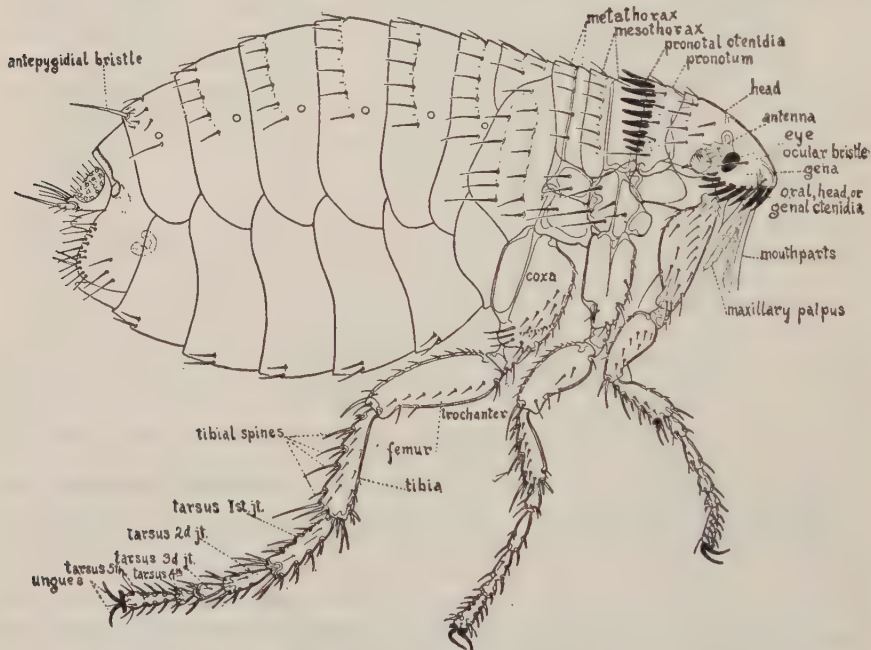 metathorax
mesothorax
pronotal ctenidia
pronotum
antepygidial bristle
head
antenna
eye
ocular bristle
gena
oral, head, or
genal ctenidia
mouthparts
maxillary palpus
coxa
trochanter
femur
tibial spines
tibia
tarsus 1st jt.
tarsus 2d jt.
tarsus 3d jt.
tarsus 4th
tarsus 5th
ungues